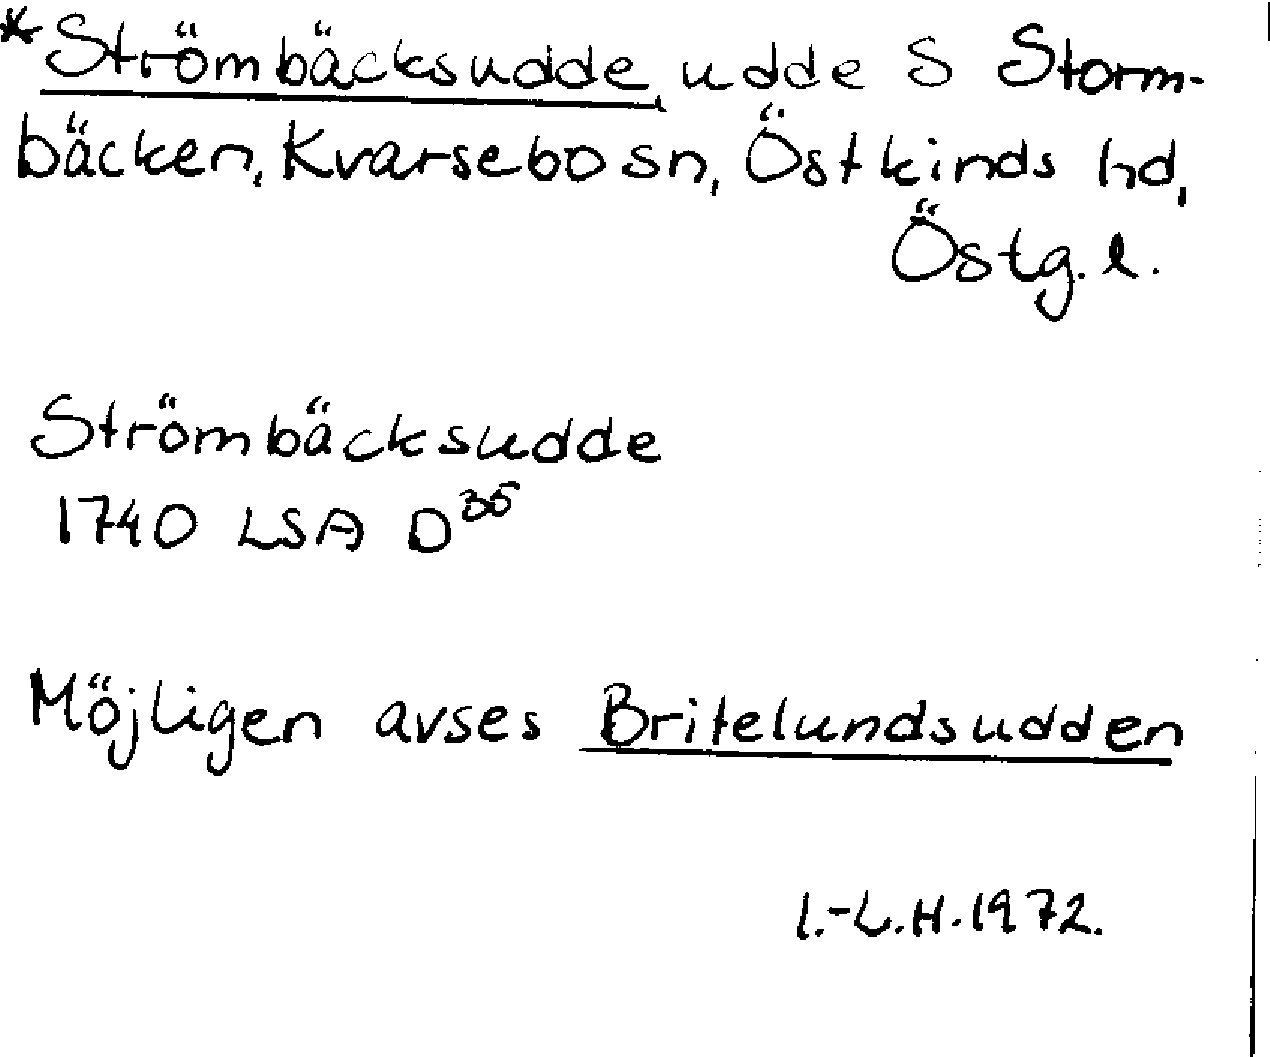 *Strömbäcksudde, udde S Storm-
bäcken, Kvarsebo sn, Östkinds hd,
Östg. l.
Strömbäcksudde
1740 LSA D³⁵
Möjligen avses Britelundsudden
I.-L.H. 1972.